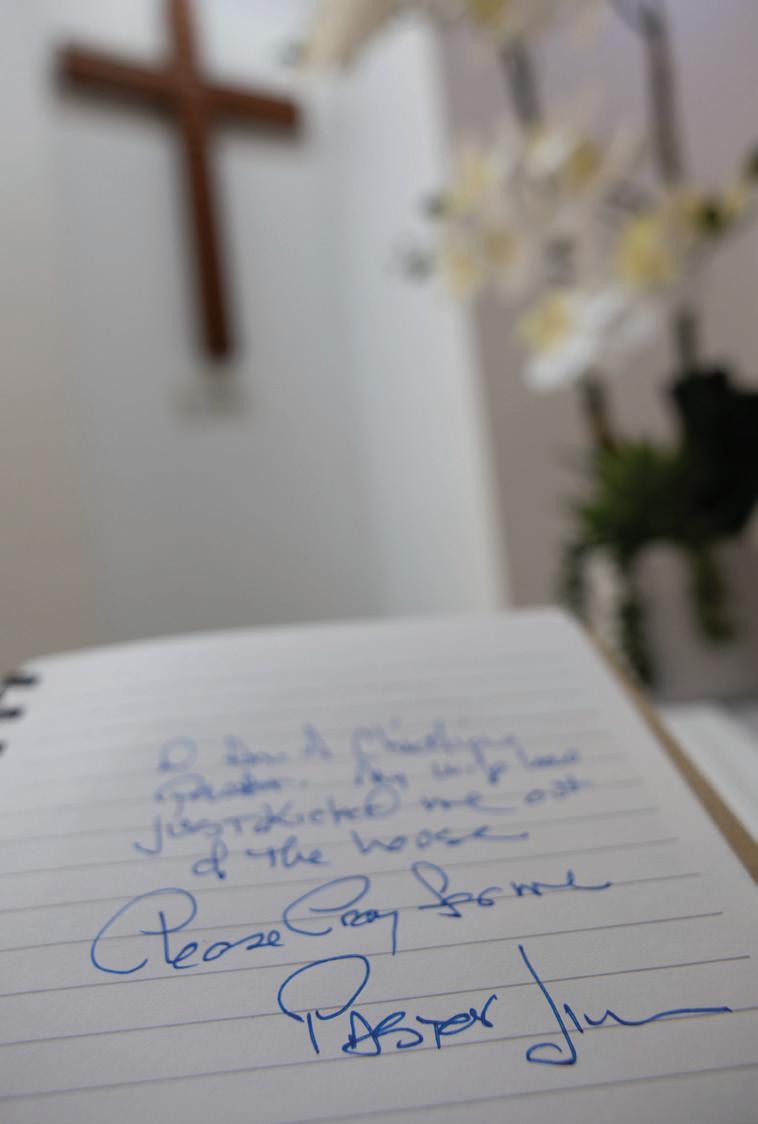 I am A Christian
Pastor. My wife has
JUST Kicked me out
of The house
Please Pray for me
PASTOR Jim